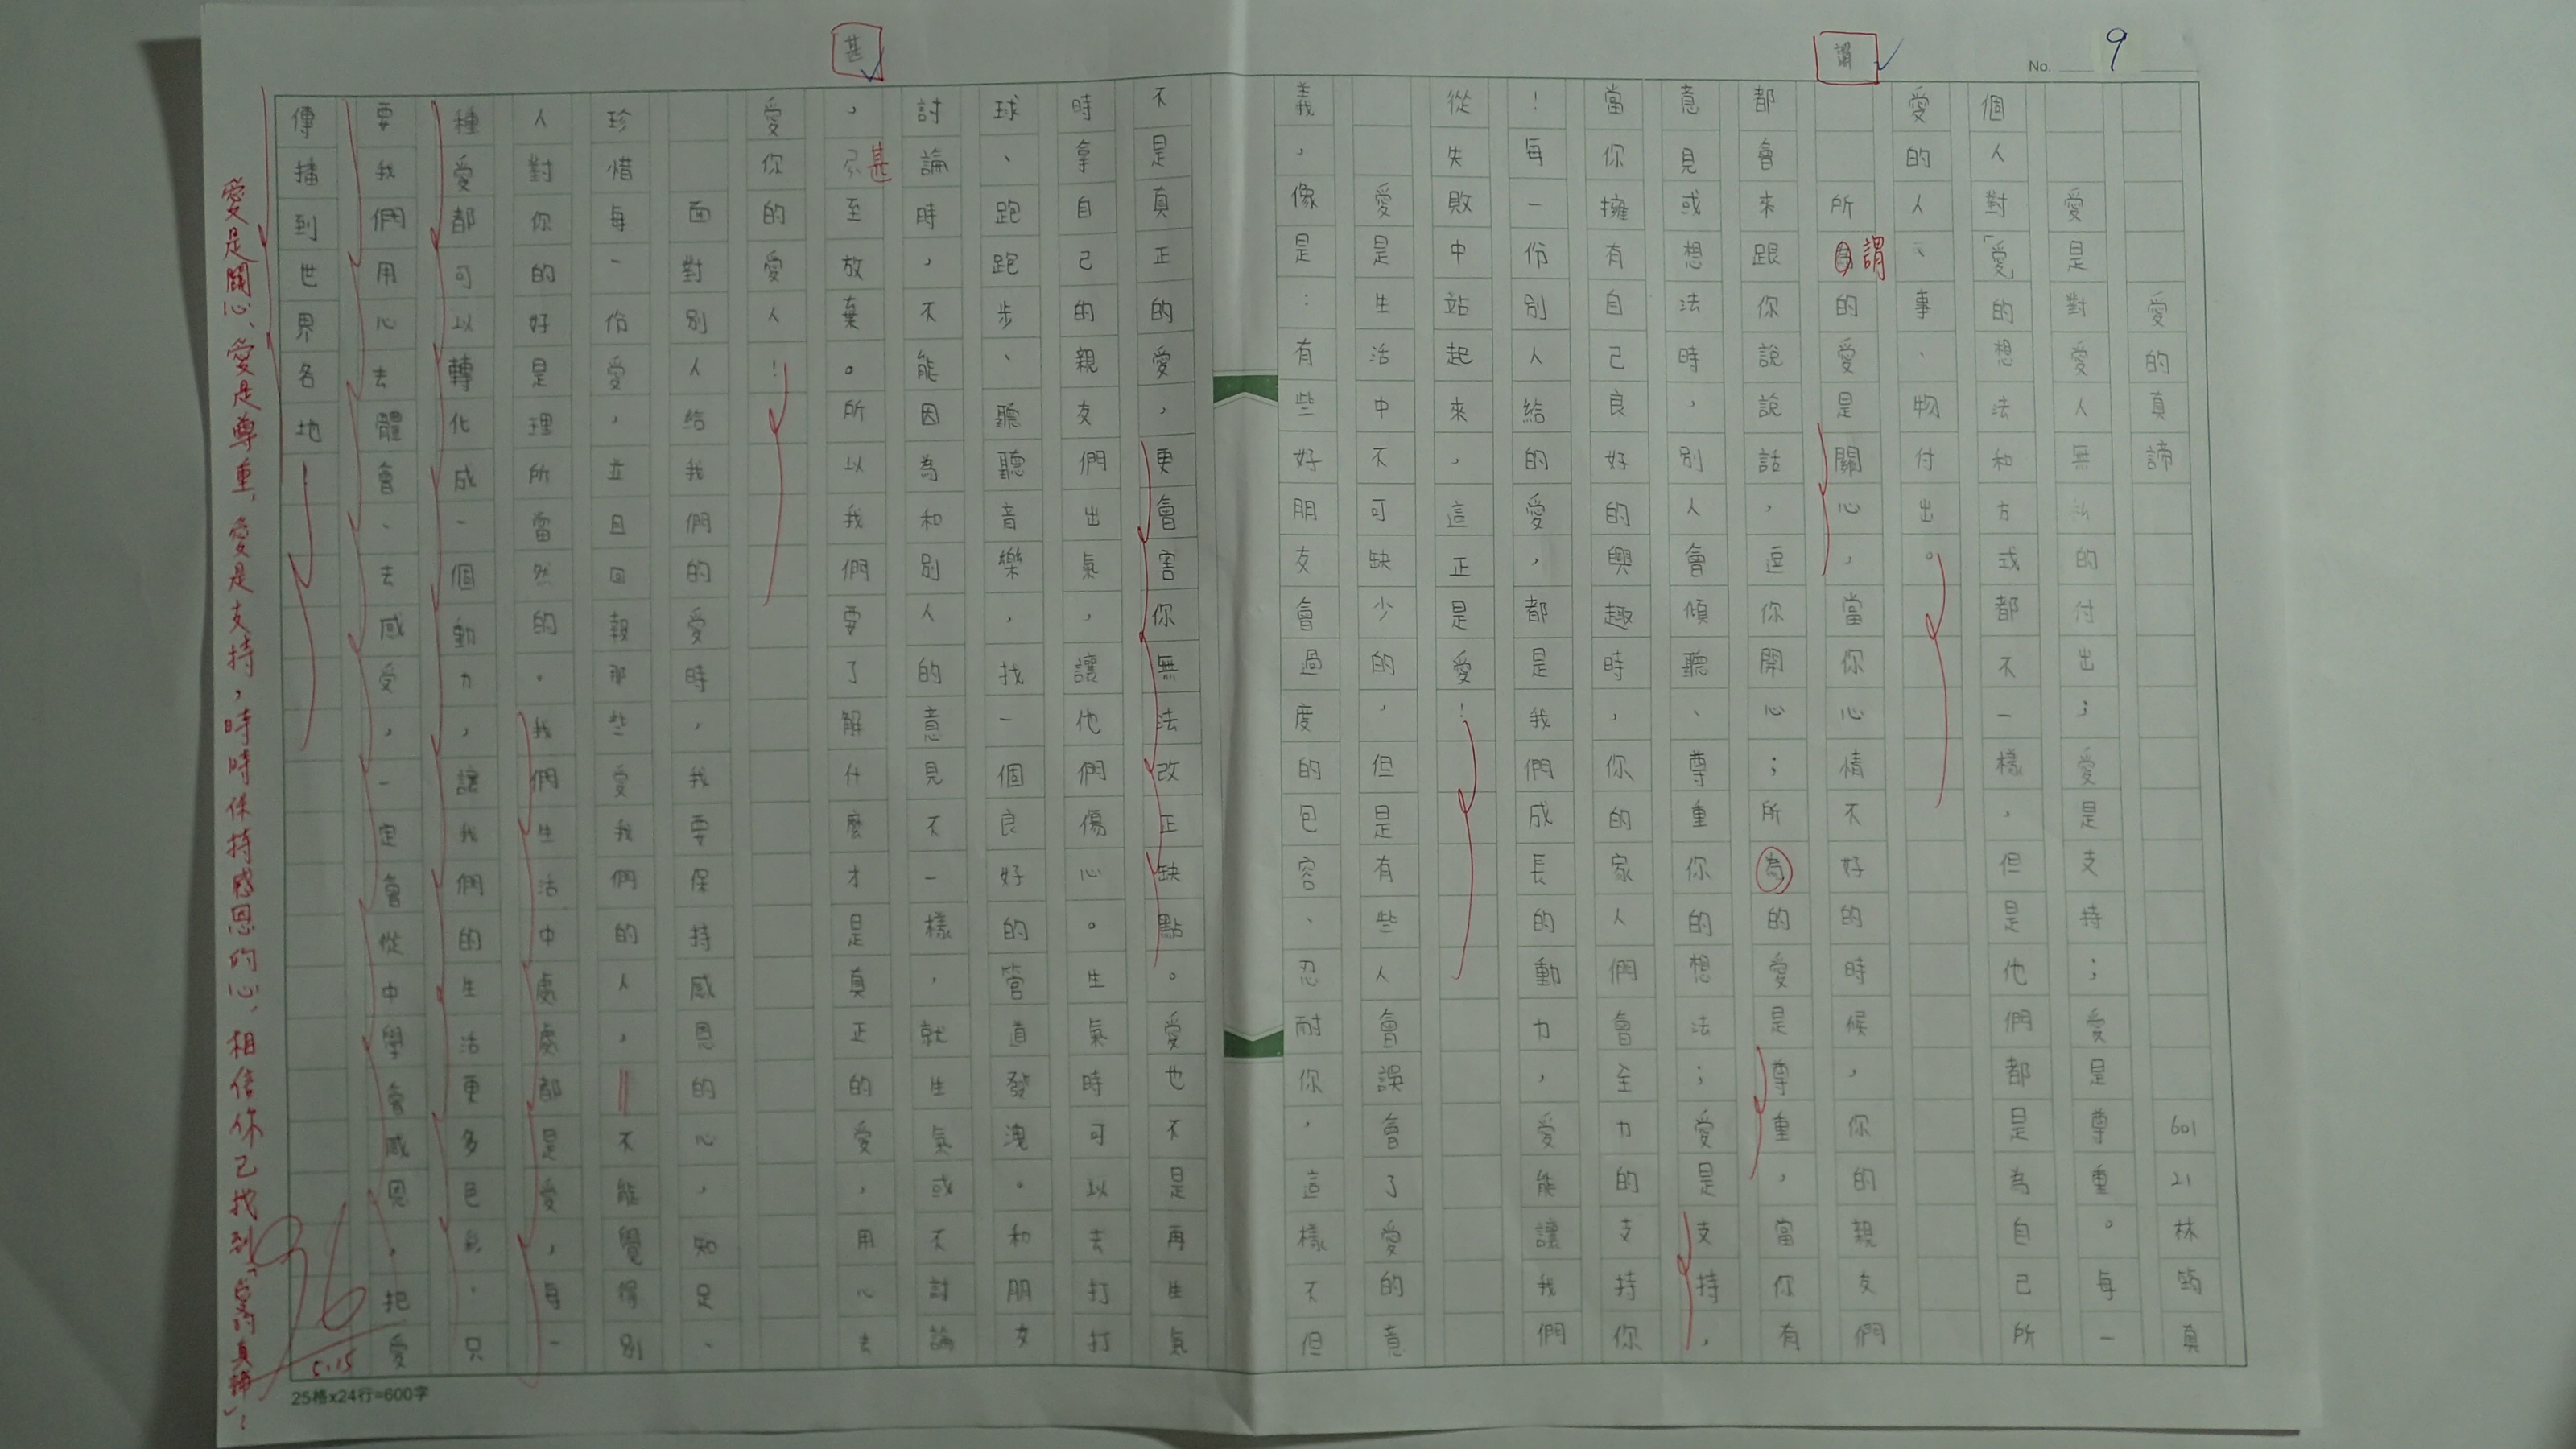 No. 9
謂
甚
愛的真諦 601 21 林筠真
愛是對愛人無法的付出；愛是支持；愛是尊重。每一
個人對「愛」的想法和方式都不一樣，但是他們都是為自己所
愛的人、事、物付出。
所為謂的愛是關心，當你心情不好的時候，你的親友們
都會來跟你說說話，逗你開心；所為的愛是尊重，當你有
意見或想法時，別人會傾聽、尊重你的想法；愛是支持，
當你擁有自己良好的興趣時，你的家人們會全力的支持你
！每一份別人給的愛，都是我們成長的動力，愛能讓我們
從失敗中站起來，這正是愛！
愛是生活中不可缺少的，但是有些人會誤會了愛的意
義，像是：有些好朋友會過度的包容、忍耐你，這樣不但
不是真正的愛，更會害你無法改正缺點。愛也不是再生氣
時拿自己的親友們出氣，讓他們傷心。生氣時可以去打打
球、跑跑步、聽聽音樂，找一個良好的管道發洩。和朋友
討論時，不能因為和別人的意見不一樣，就生氣或不討論
，甚至放棄。所以我們要了解什麼才是真正的愛，用心去
愛你的愛人！
面對別人給我們的愛時，我要保持感恩的心，知足、
珍惜每一份愛，並且回報那些愛我們的人，不能覺得別
人對你的好是理所當然的。我們生活中處處都是愛，每一
種愛都可以轉化成一個動力，讓我們的生活更多色彩，只
要我們用心去體會、去感受，一定會從中學會感恩，把愛
傳播到世界各地！
愛是關心、愛是尊重、愛是支持，時時保持感恩的心，相信你已找到「愛的真諦」！
96
5.15
25格x24行=600字